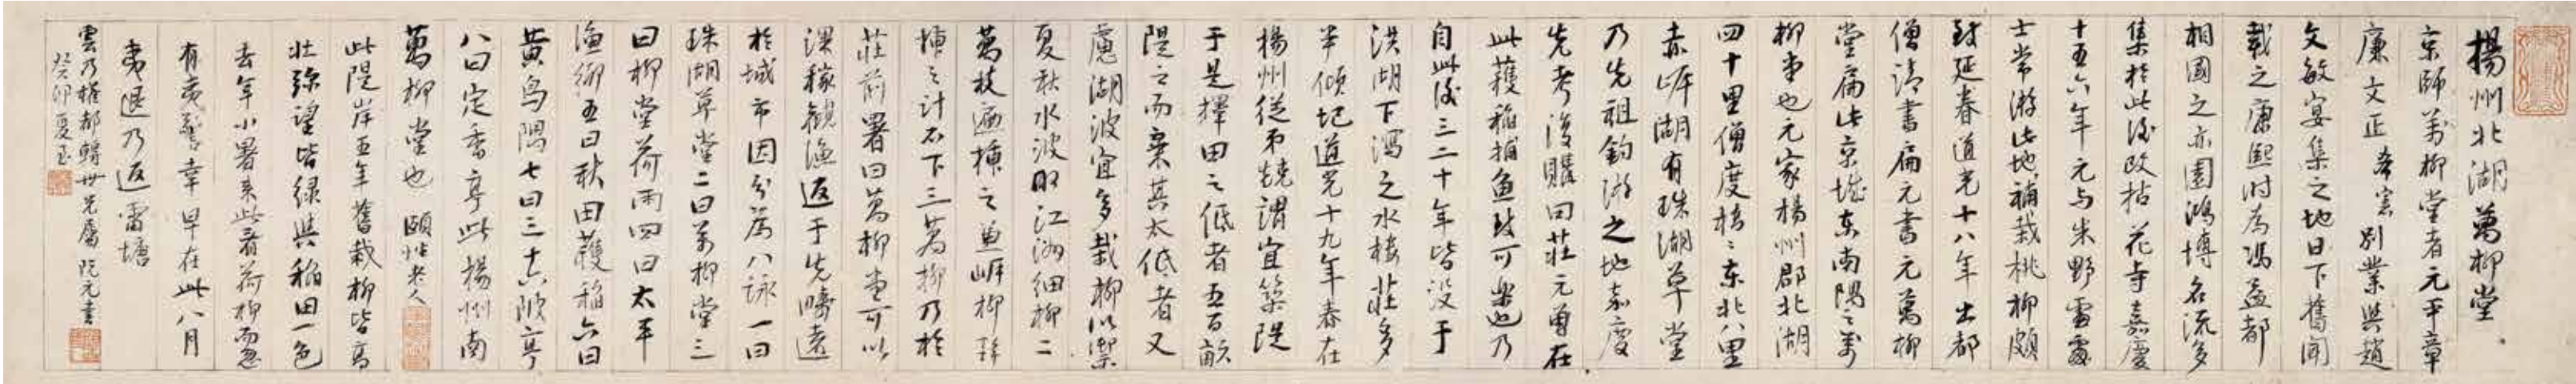 揚州北湖萬柳堂
京師萬柳堂者元平章
廉文正希憲別業與趙
文敏宴集之地日下舊聞
載之康熙時為馮益都
相國之亦園鴻博名流多
集於此後改拈花寺嘉慶
十五六年元与朱野雲處
士常游此地補栽桃柳頗
致延眷道光十八年出都
僧請書扁元書元萬柳
堂扁此京城東南隅之萬
柳堂也元家揚州郡北湖
四十里僧度橋橋東北八里
赤岸湖有珠湖草堂
乃先祖釣游之地嘉慶
先考復購田莊元曾在
此穫稻捕魚致可樂也乃
自此後三二十年皆沒于
洪湖下瀉之水樓莊多
半傾圮道光十九年春在
揚州從弟慎謂宜築隄
于是擇田之低者五百畝
隄之而棄其太低者又
慮湖波宜多栽柳以禦
夏秋水波取江洲細柳二
萬枝遍插之兼岸柳
插之計不下三萬柳乃於
莊前署曰萬柳堂可以
課稼觀漁返于先疇遠
於城市因分為八詠一曰
珠湖草堂二曰萬柳堂三
曰柳堂荷雨四曰太平
漁鄉五曰秋田穫稻六曰
黃鳥隅七曰三十六陂亭
八曰定香亭此揚州南
萬柳堂也 頤性老人
此隄岸五年舊栽柳皆高
壯弥望皆綠與稻田一色
去年小暑来此看荷柳而忽
有夷警幸早在此八月
夷退乃返雷塘
雲乃權都轉世兄屬 阮元書
癸卯夏至